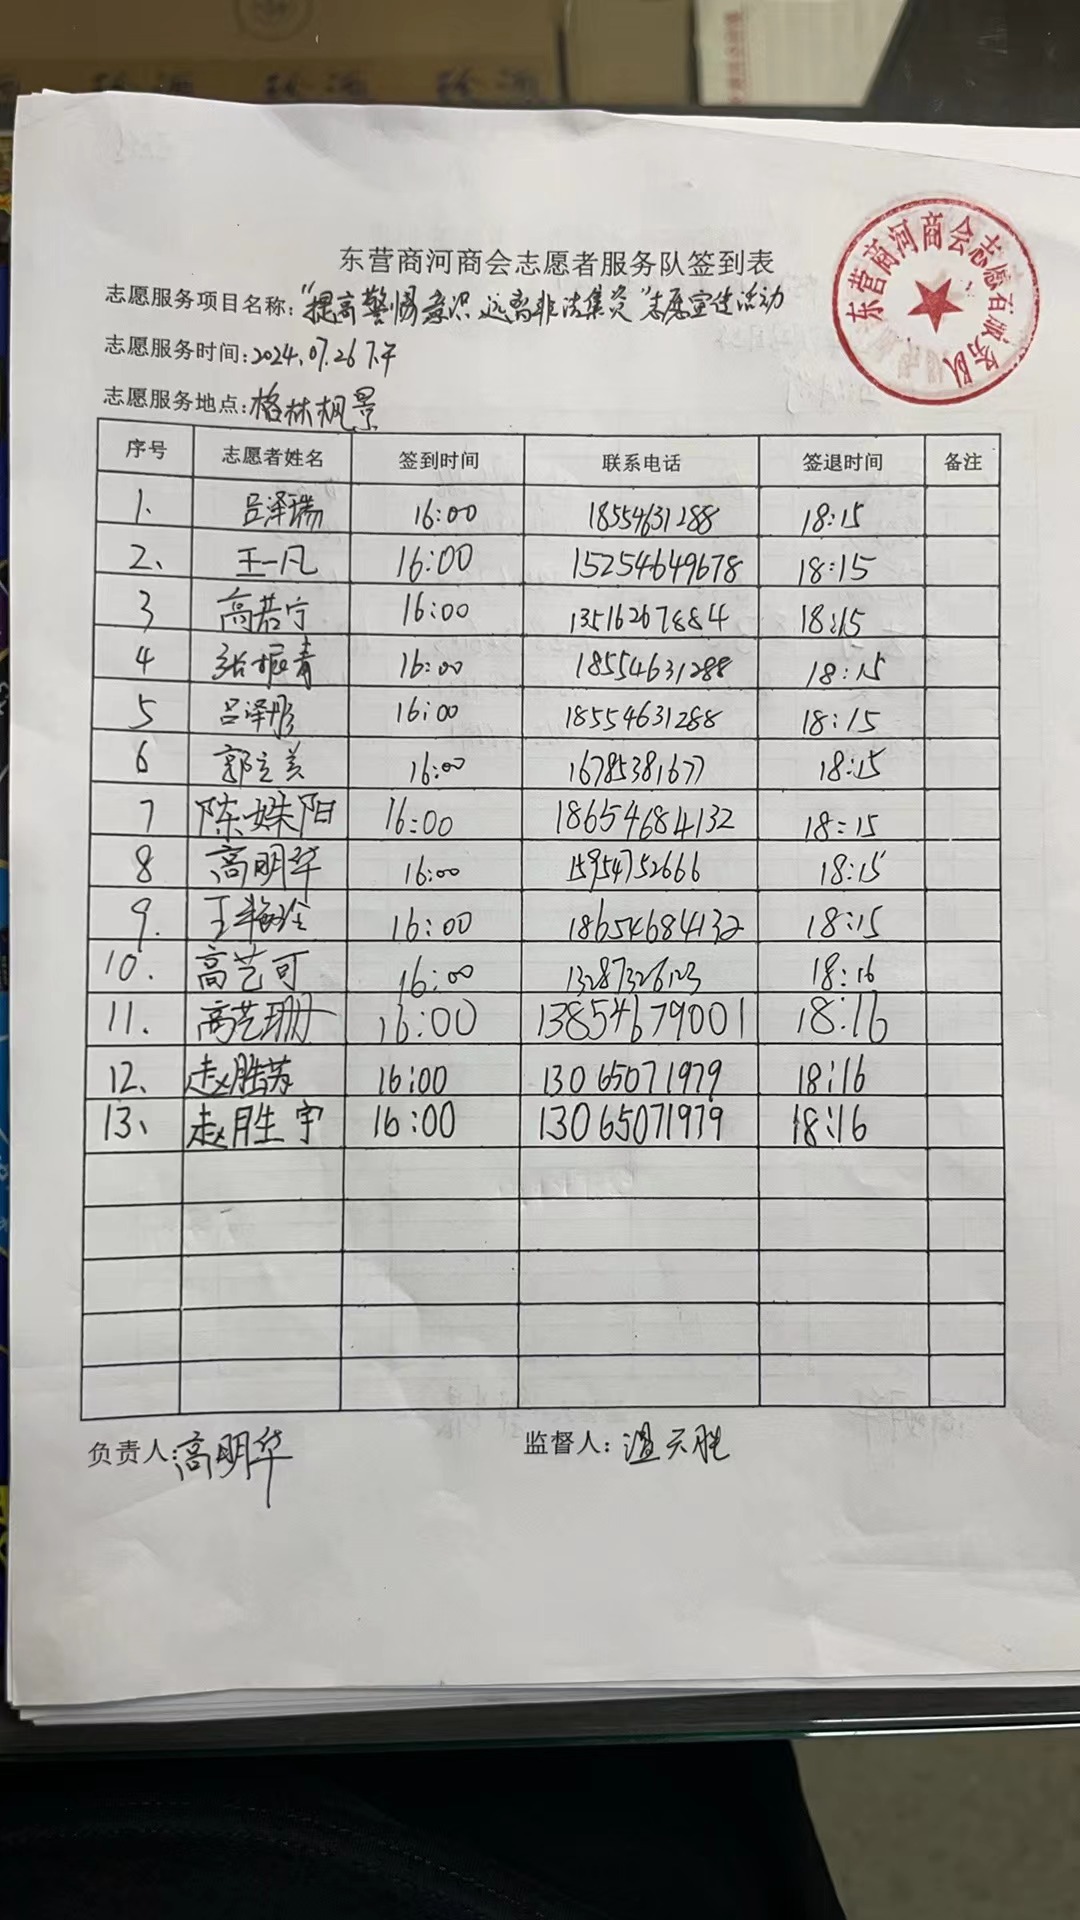 东营商河商会志愿者服务队签到表
志愿服务项目名称:"提高警惕意识 远离非法集资"志愿宣传活动
志愿服务时间:2024.07.26下午
志愿服务地点:格林枫景
序号 志愿者姓名 签到时间 联系电话 签退时间 备注
1. 吕泽瑞 16:00 18554631288 18:15
2、 王一凡 16:00 15254649678 18:15
3 高若宁 16:00 13516267884 18:15
4 张振青 16:00 18554631288 18:15
5 吕泽彤 16:00 18554631288 18:15
6 郭立美 16:00 16785381677 18:15
7 陈姝阳 16:00 18654684132 18:15
8 高明华 16:00 15954752666 18:15
9. 王 16:00 18654684132 18:15
10. 高艺可 16:00 13287326123 18:16
11. 高艺珊 16:00 13854679001 18:16
12、 赵胜 16:00 13065071979 18:16
13、 赵胜宇 16:00 13065071979 18:16
负责人:高明华 监督人:温天胜
东营商河商会志愿者服务队